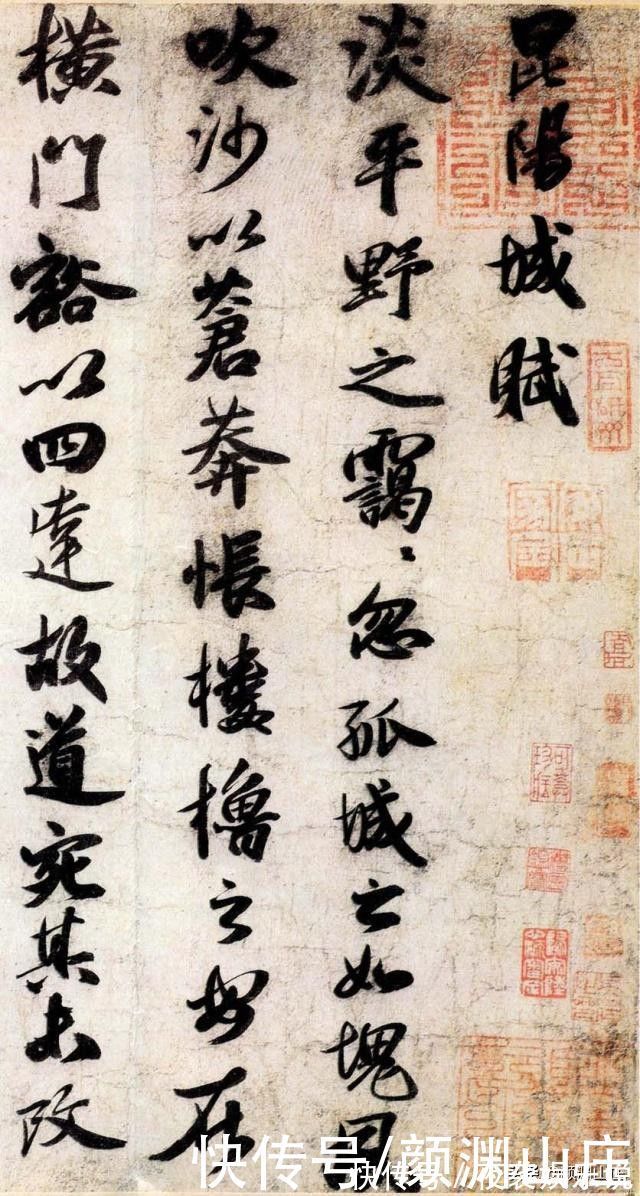 昆陽城賦
淡平野之靄〻忽孤城之如塊風
吹沙以蒼莽悵樓櫓之安在
橫門豁以四達故道宛其未改
快传号/颜渊山庄